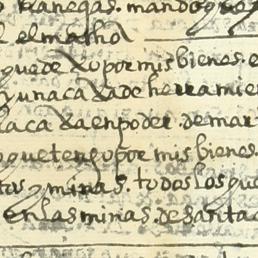 hanegas. mando q
el. el matho
que de xo por mis bienes. e
y una caxa de herramie
la caxa en poder. de mar
que tengo por mis bienes.
tas y minas. todas las que
en las minas. de santa